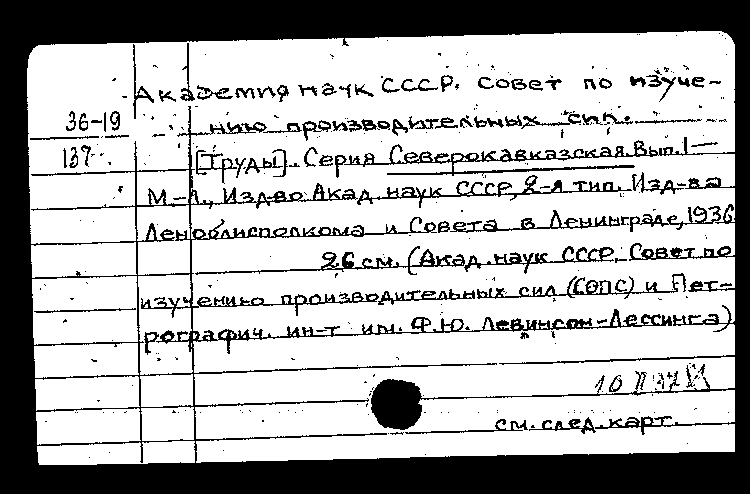 Академия наук СССР. Совет по изуче-
36-19 нию производительных сил.
137 [Труды]. Серия Северокавказская. Вып. 1—
М.-Л., Изд-во Акад. наук СССР, 2-я тип. Изд-ва
Леноблисполкома и Совета в Ленинграде, 1936
26 см. (Акад. наук СССР. Совет по
изучению производительных сил (СОПС) и Пет-
рографич. ин-т им. Ф.Ю. Левинсон-Лессинга)
10 II 37
см. след. карт.